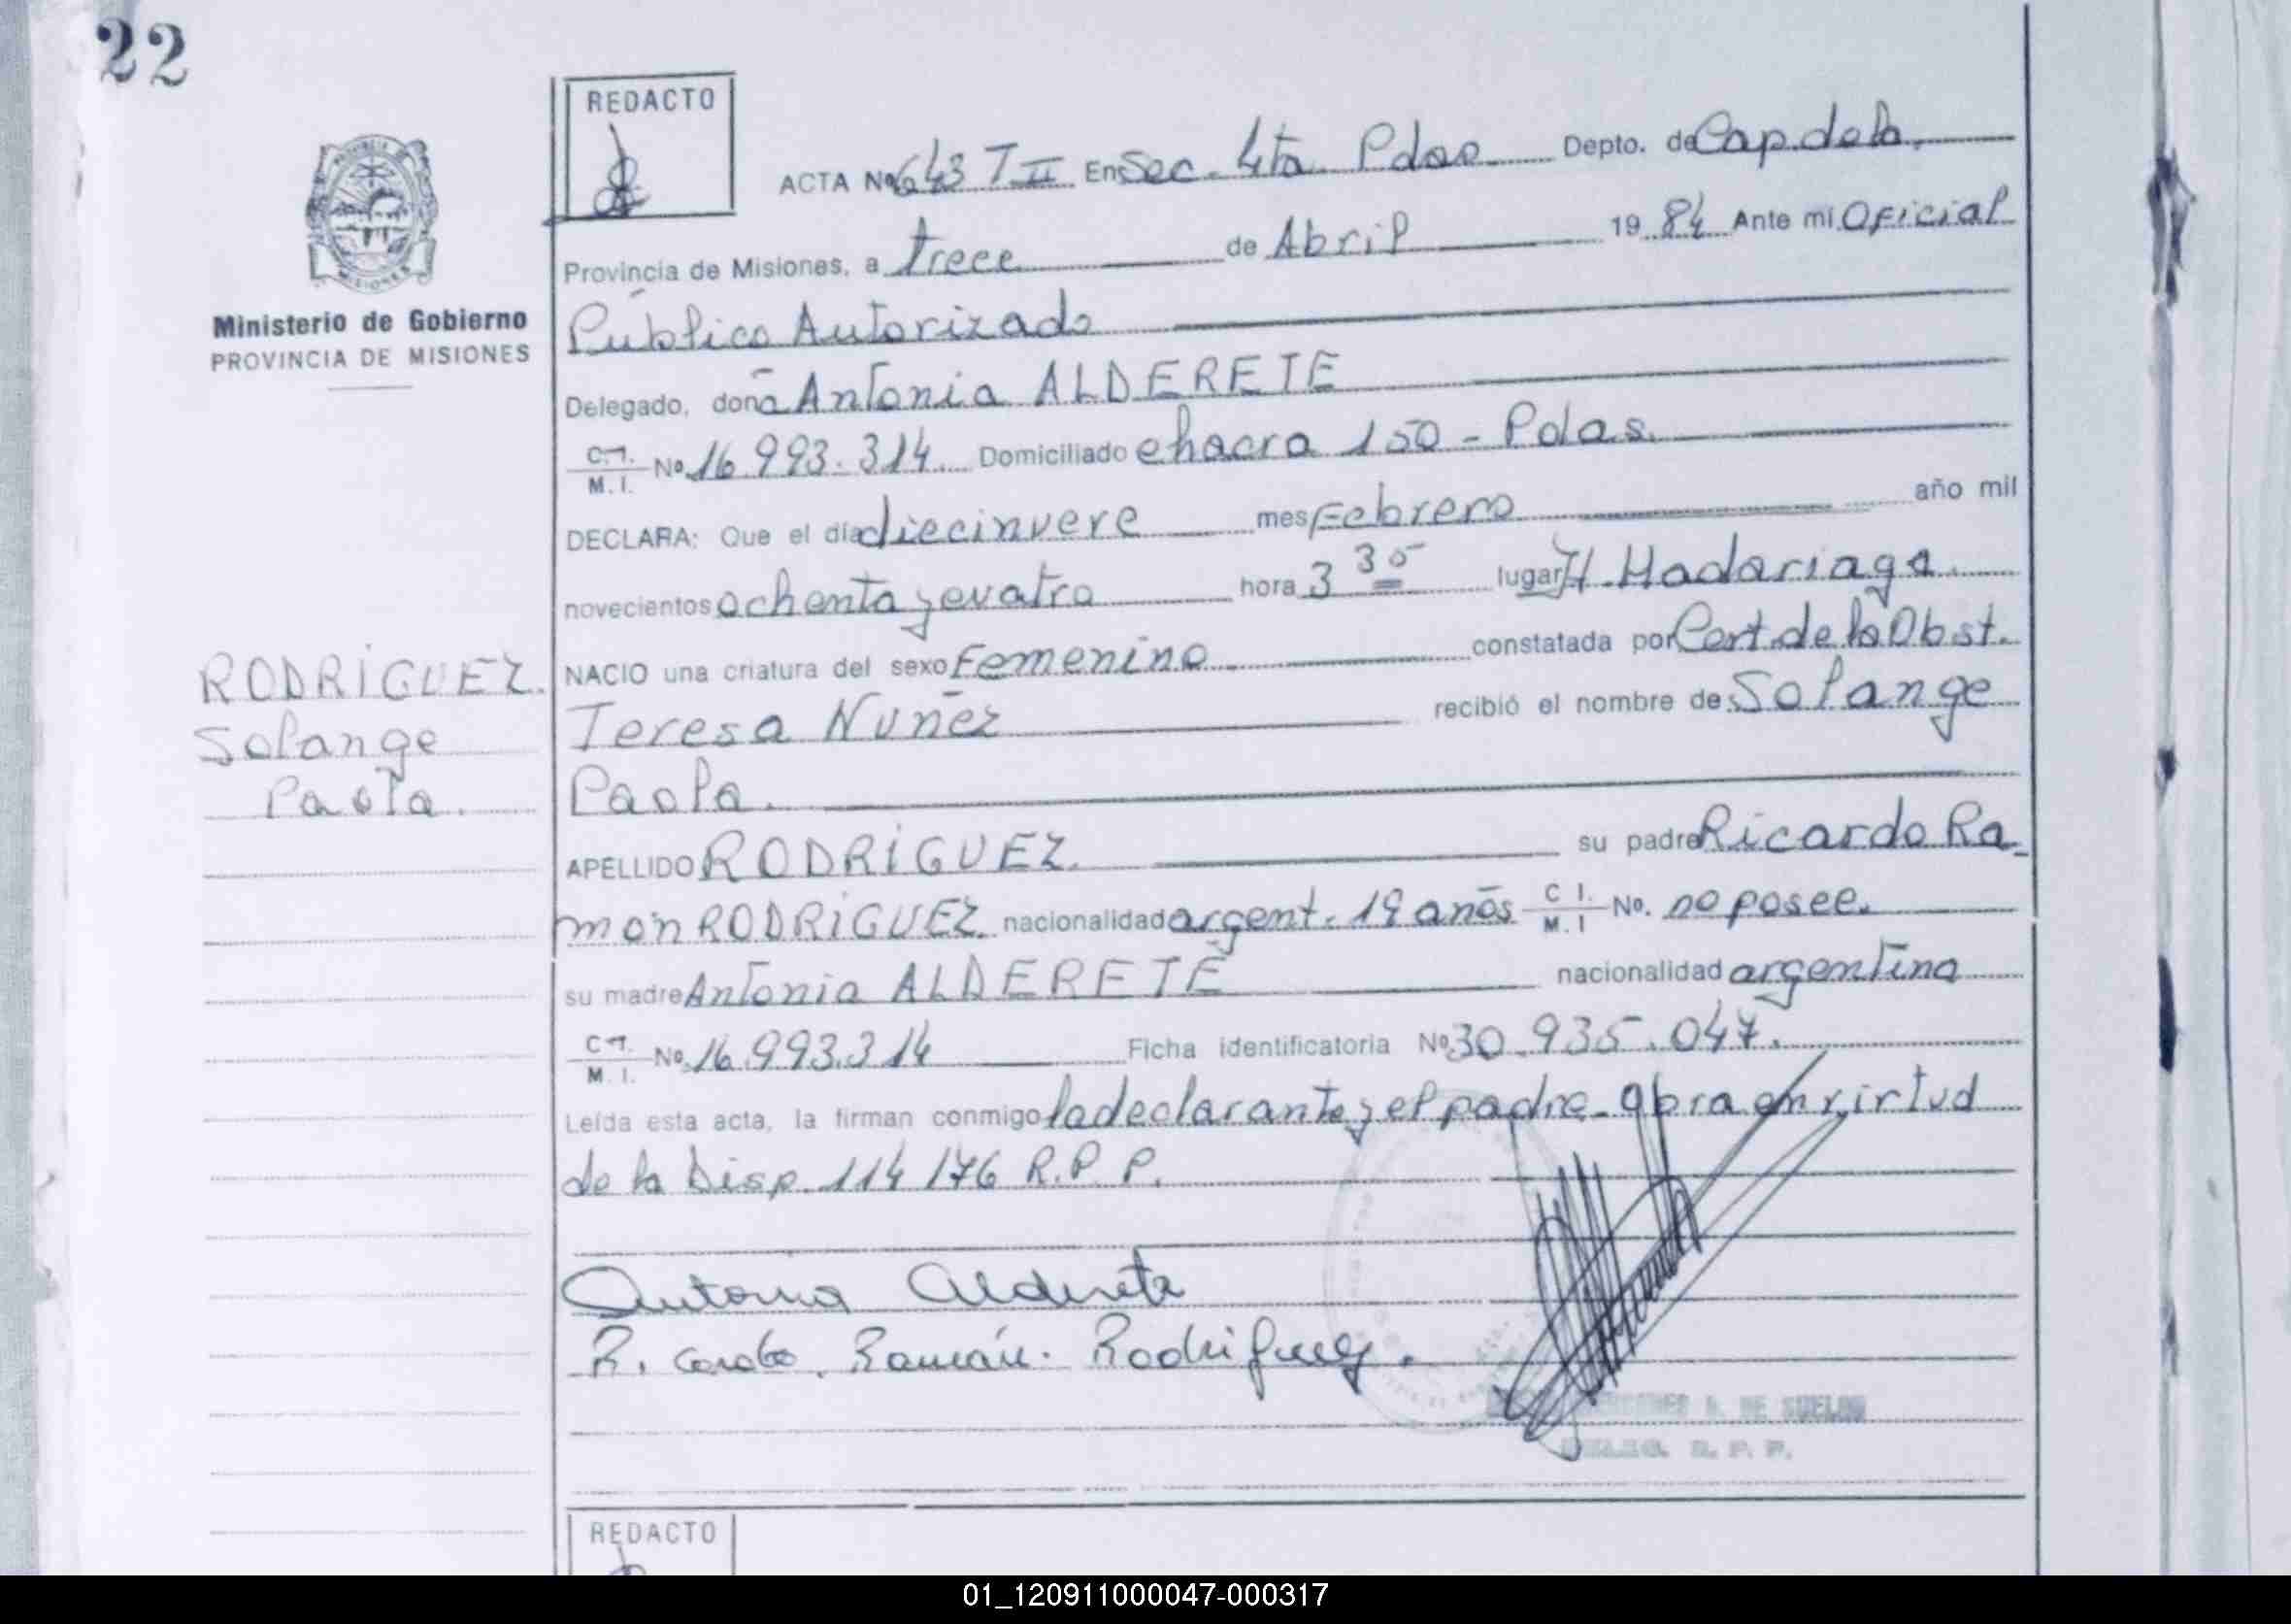 22
REDACTO
ACTA No 643 T II En Sec. 4ta Pdas Depto. de Cap. de la
Provincia de Misiones, a trece de Abril 1984 Ante mi Oficial
Público Autorizado
Ministerio de Gobierno
PROVINCIA DE MISIONES
Delegado, doña Antonia ALDERETE
C.I. M.I. No 16.993.314 Domiciliado chacra 150 - Pdas.
DECLARA: Que el día diecinueve mes Febrero año mil
novecientos ochenta y cuatro hora 3 30 lugar H. Madariaga
NACIO una criatura del sexo Femenino constatada por Cert. de la Obst.
Teresa Nuñez recibió el nombre de Solange
Paola.
RODRÍGUEZ
Solange
Paola.
APELLIDO RODRÍGUEZ. su padre Ricardo Ra
món RODRÍGUEZ nacionalidad argent. 19 años C I. M. I No. no posee.
su madre Antonia ALDERETE nacionalidad argentina
C.I. M. I. No 16.993.314 Ficha identificatoria No 30.935.047.
Leída esta acta, la firman conmigo la declarante y el padre obra en virtud
de la Disp. 114/76 R.P.P.
Antonia Alderete
Ricardo Ramón Rodriguez.
DE SUELDO
R. P. P.
REDACTO
01_120911000047-000317